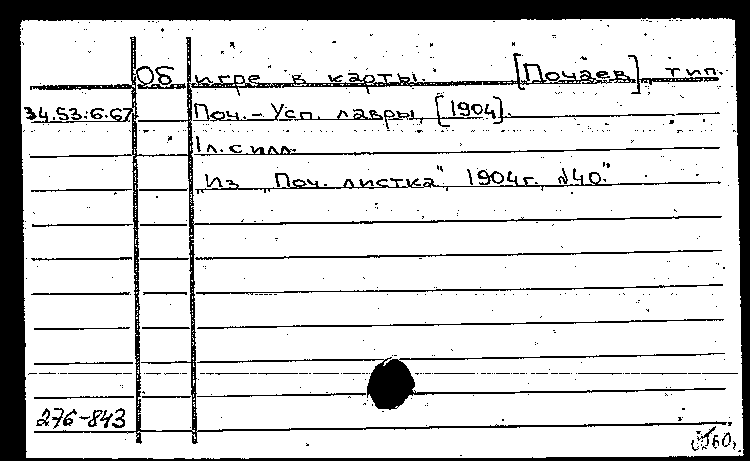 Об игре в карты. [Почаев], тип.
34.53.6.67 Поч.-Усп. лавры, [1904].
1 л. с илл.
"Из "Поч. листка", 1904г., №40."
276-843